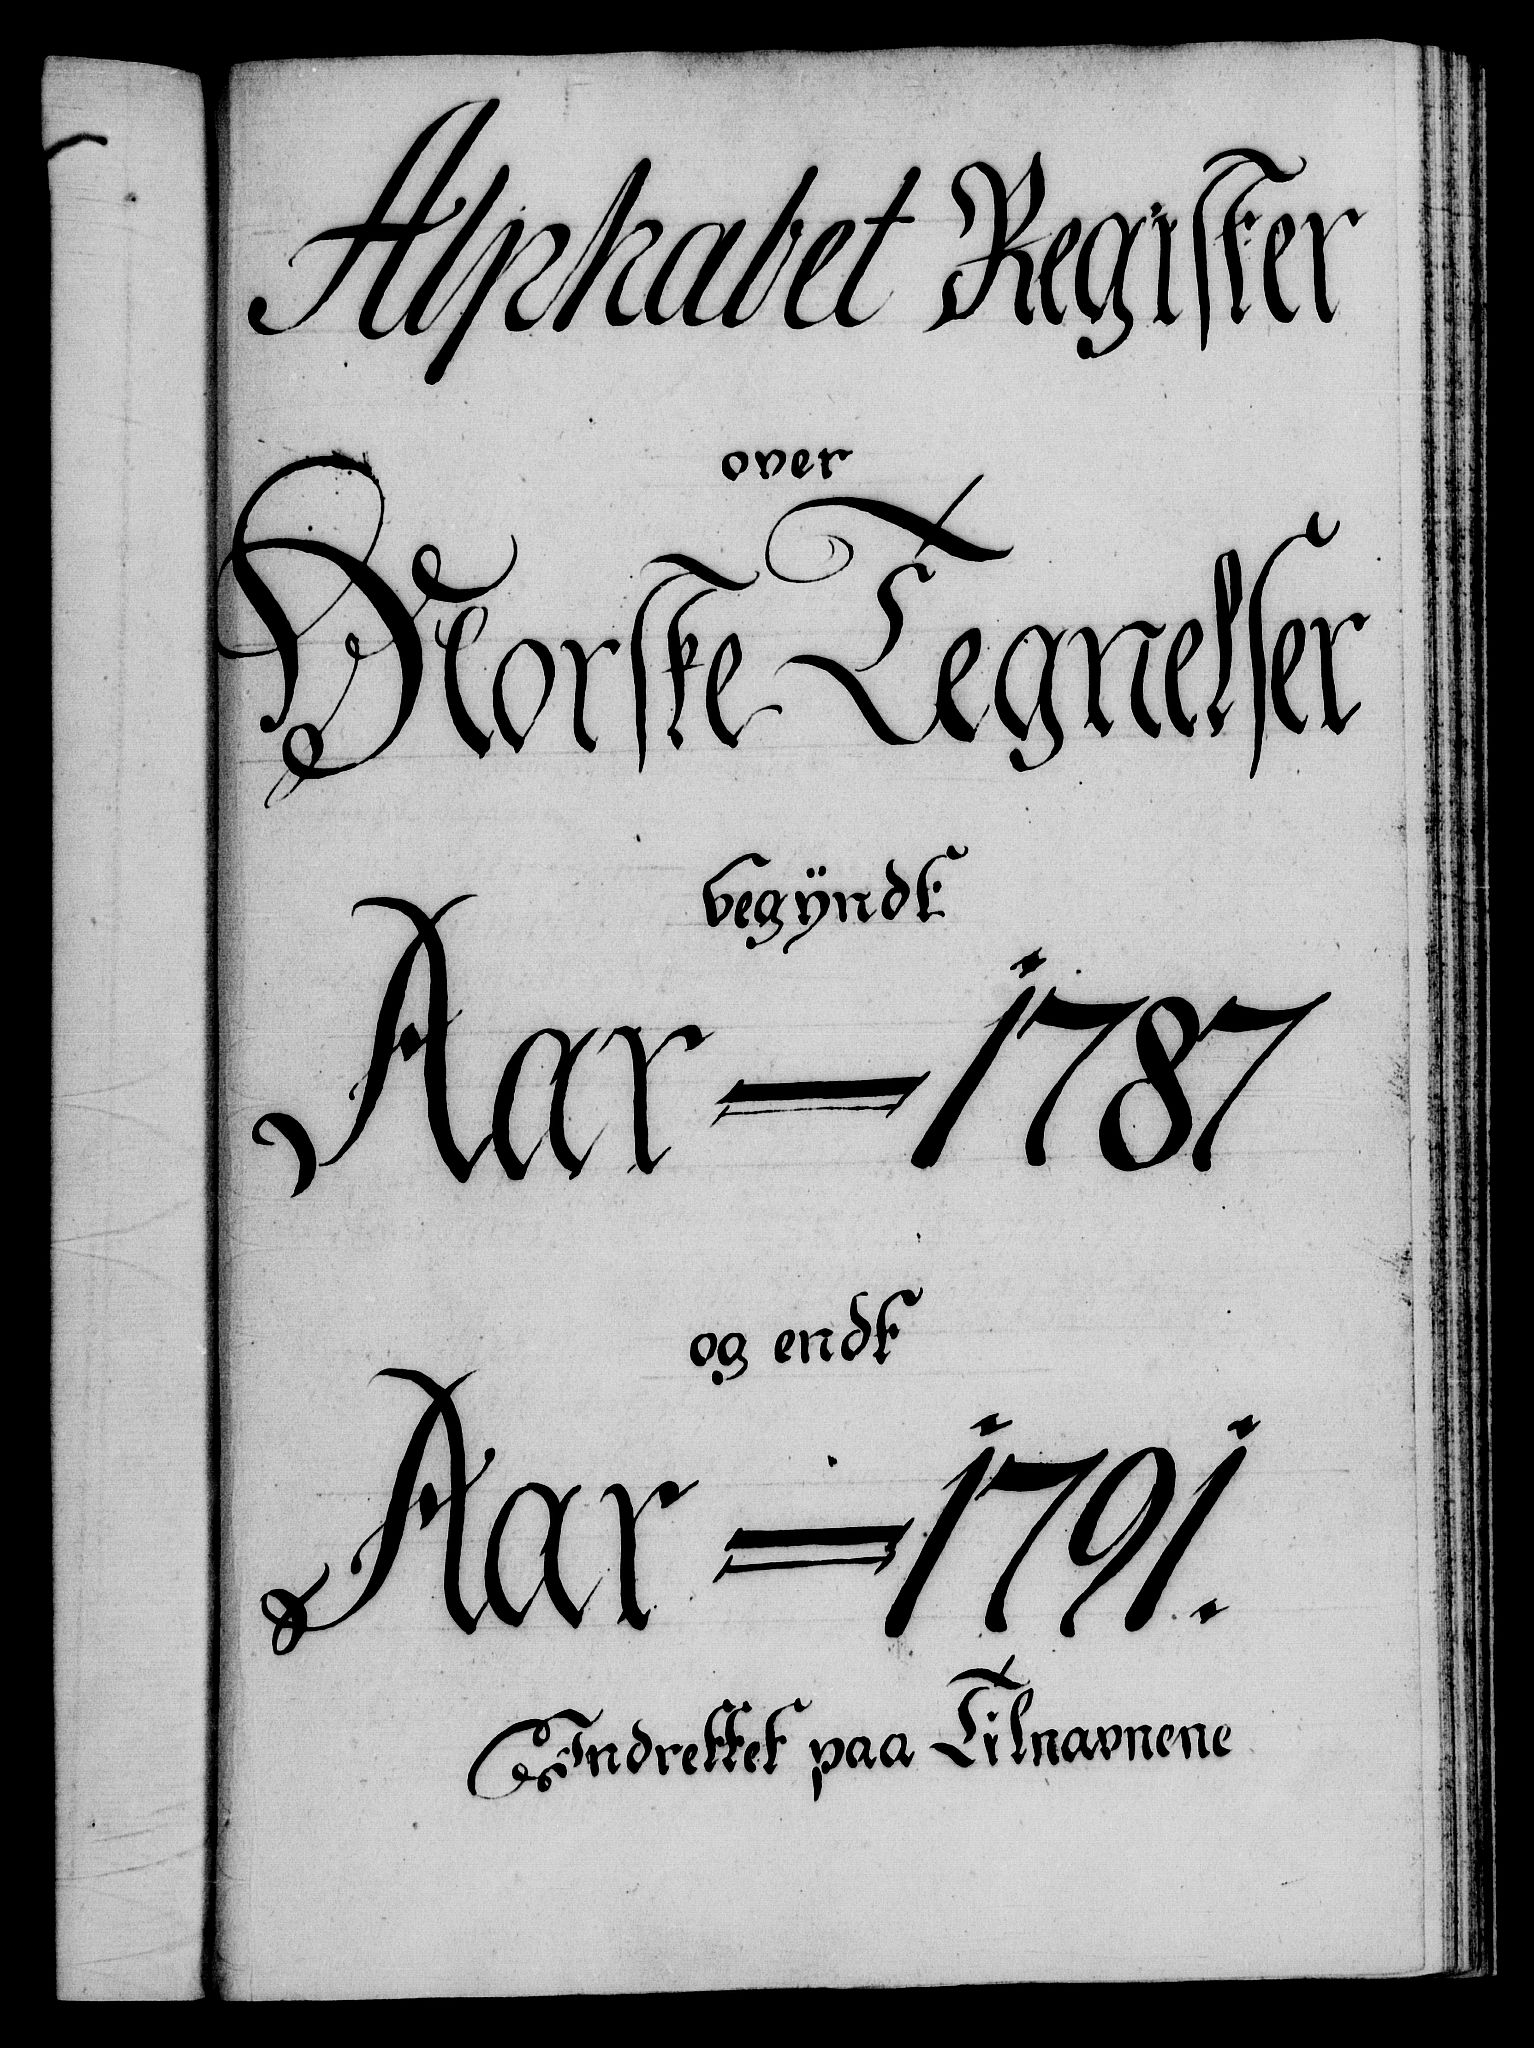 Alphabet Register
over
Norske Tegnelser
begÿndt
Aar = 1787
og endt
Aar = 1791.
Indrettet paa Tilnavnene